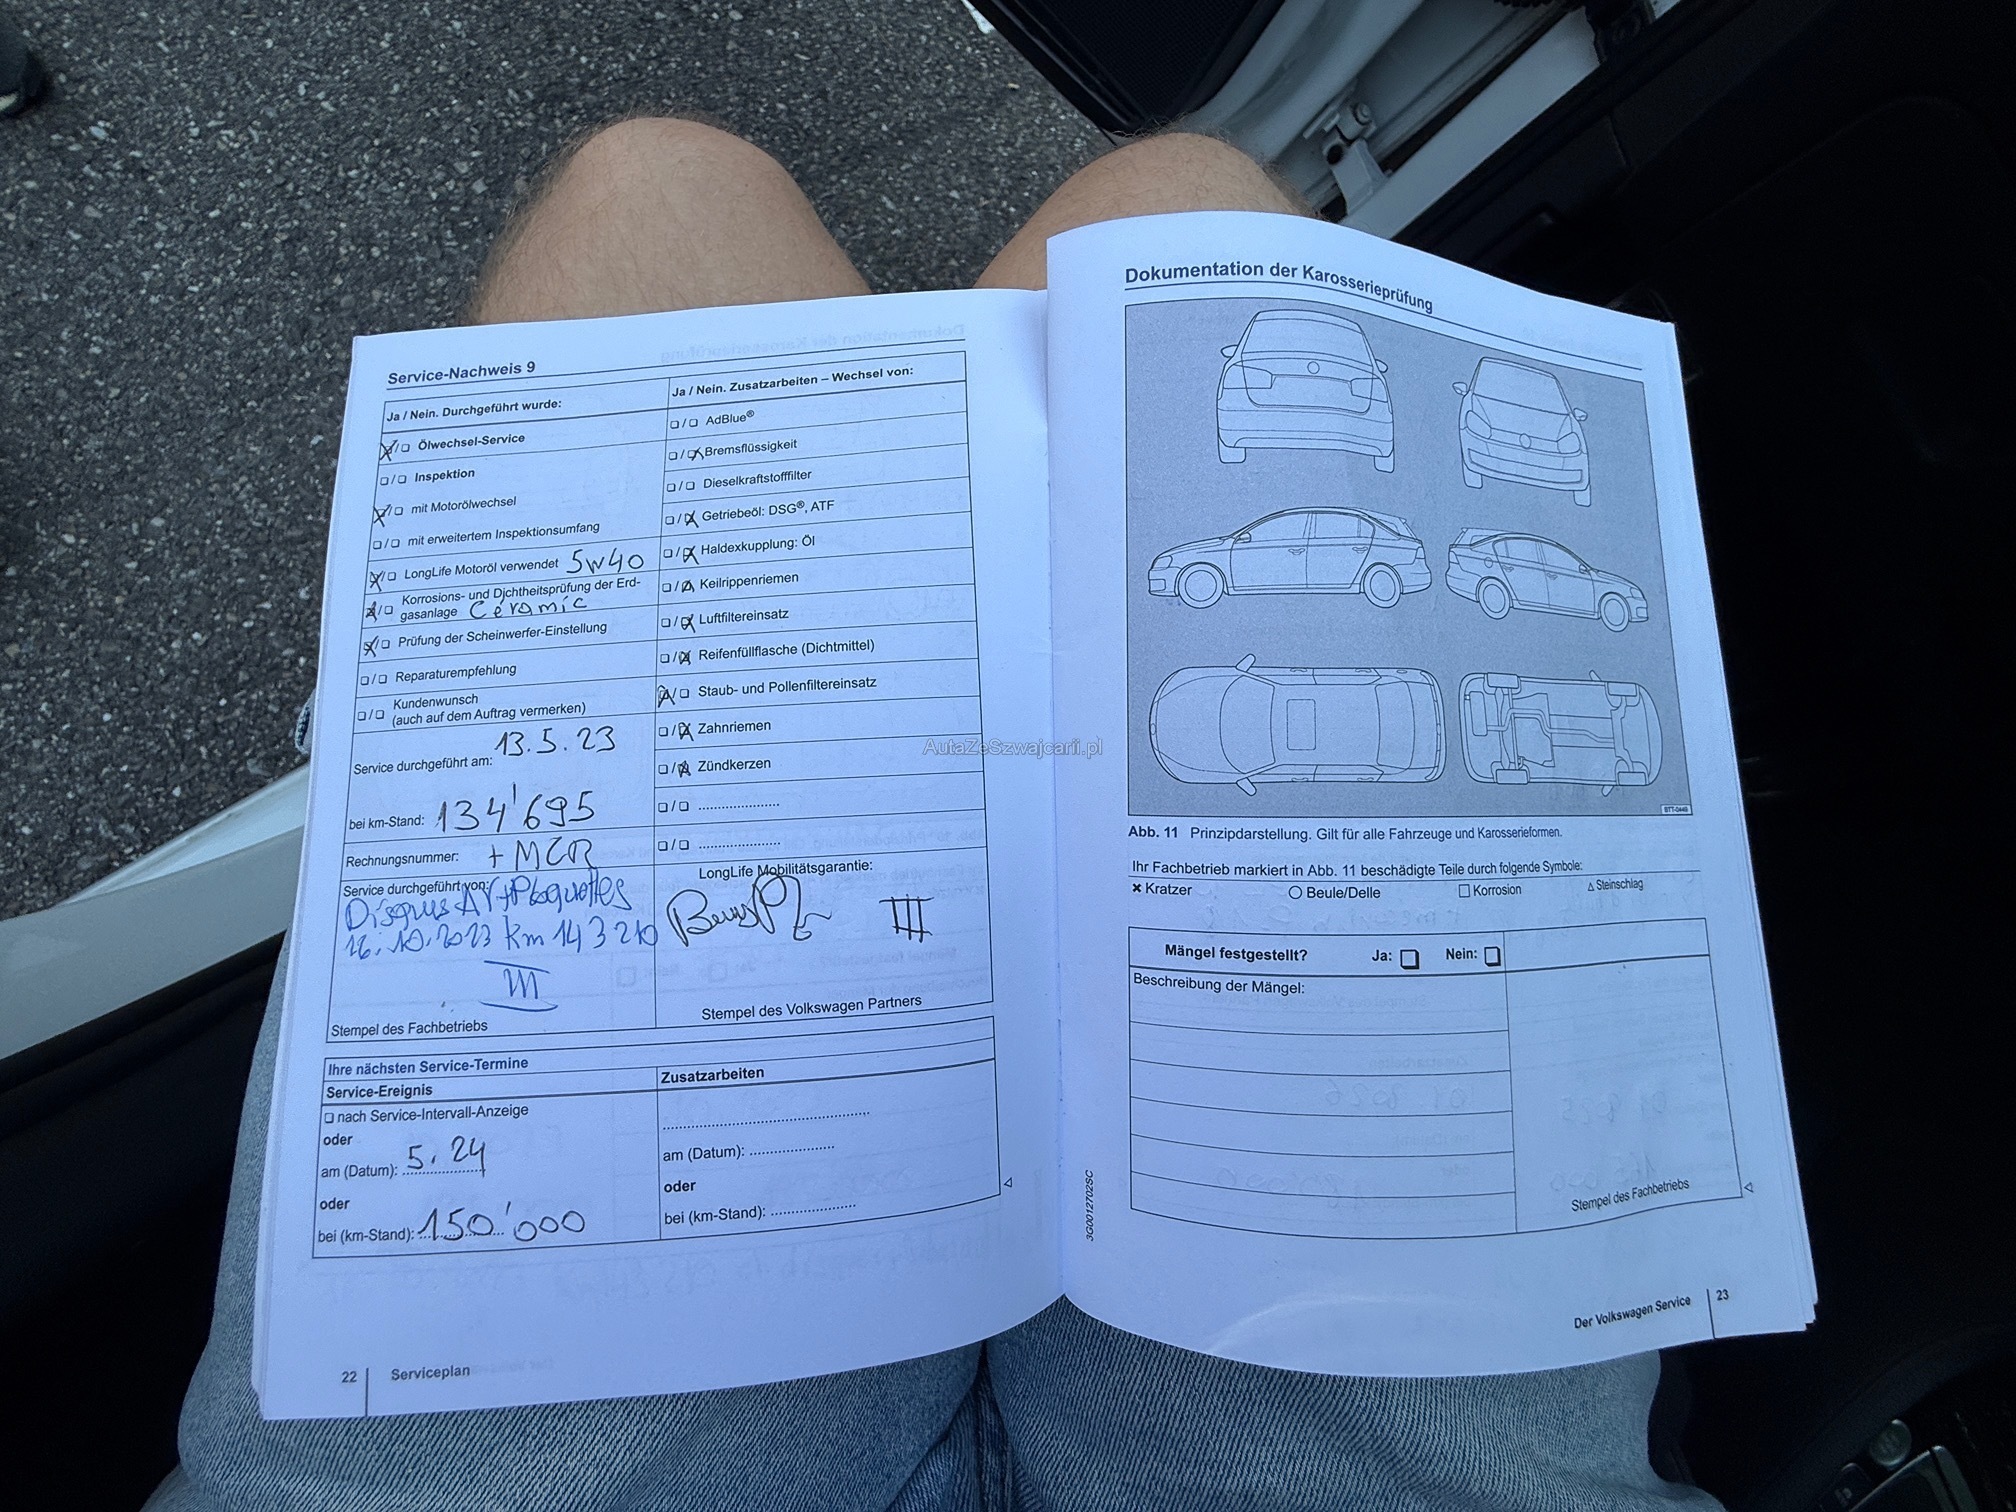 Service-Nachweis 9
Ja / Nein. Durchgeführt wurde:
Ölwechsel-Service
Inspektion
mit Motorölwechsel
mit erweitertem Inspektionsumfang
LongLife Motoröl verwendet 5W40
Korrosions- und Dichtheitsprüfung der Erd-
gasanlage Ceramic
Prüfung der Scheinwerfer-Einstellung
Reparaturempfehlung
Kundenwunsch
(auch auf dem Auftrag vermerken)
Service durchgeführt am: 13.5.23
bei km-Stand: 134'695
Rechnungsnummer: + MCR
Service durchgeführt von:
AV+Plaquettes
16.10.2023 km 143210
Stempel des Fachbetriebs
Ja / Nein. Zusatzarbeiten – Wechsel von:
AdBlue®
Bremsflüssigkeit
Dieselkraftstofffilter
Getriebeöl: DSG®, ATF
Haldexkupplung: Öl
Keilrippenriemen
Luftfiltereinsatz
Reifenfüllflasche (Dichtmittel)
Staub- und Pollenfiltereinsatz
Zahnriemen
Zündkerzen
LongLife Mobilitätsgarantie:
Stempel des Volkswagen Partners
Ihre nächsten Service-Termine
Service-Ereignis
nach Service-Intervall-Anzeige
oder
am (Datum): 5.24
oder
bei (km-Stand): 150'000
Zusatzarbeiten
am (Datum):
oder
bei (km-Stand):
22 Serviceplan
Dokumentation der Karosserieprüfung
BTT-0448
Abb. 11 Prinzipdarstellung. Gilt für alle Fahrzeuge und Karosserieformen.
Ihr Fachbetrieb markiert in Abb. 11 beschädigte Teile durch folgende Symbole:
Kratzer Beule/Delle Korrosion Steinschlag
Mängel festgestellt? Ja: Nein:
Beschreibung der Mängel:
Stempel des Fachbetriebs
3G0012702SC
Der Volkswagen Service 23
AutaZeSzwajcarii.pl